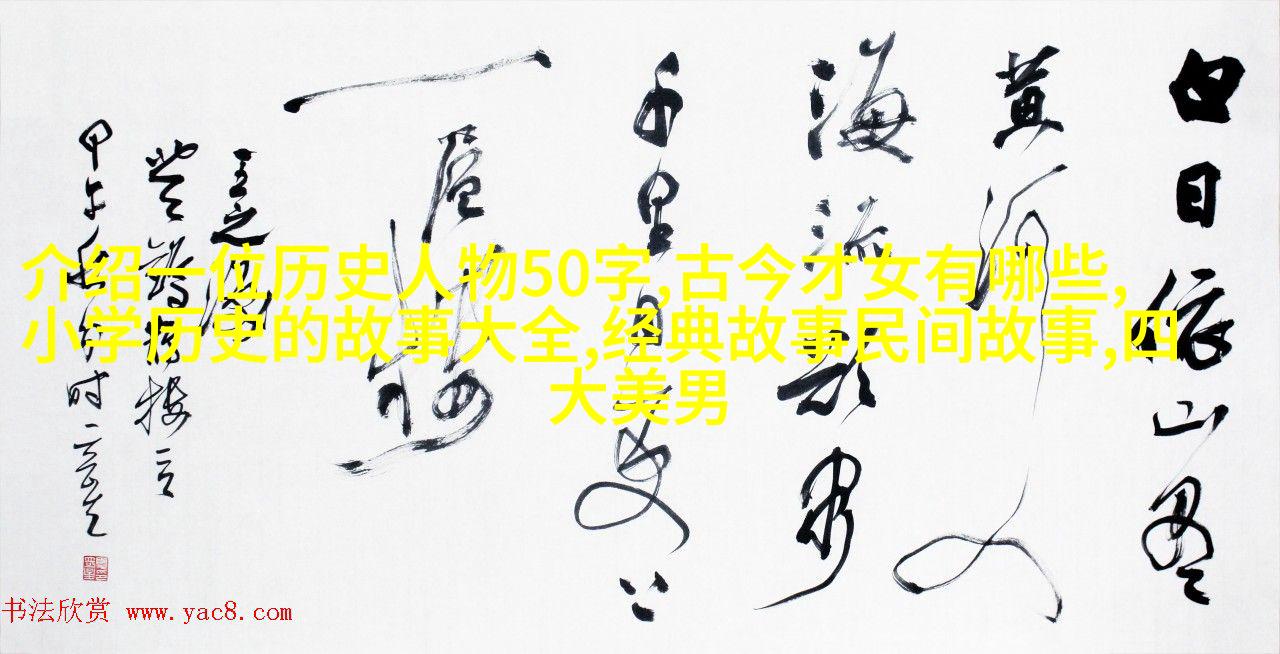 白日依山尽
黄河入
海流欲穷
千里目更上
一层楼
王之涣
登鹳雀楼诗
甲午
时
介绍一位历史人物50字,古今才女有哪些,
小学历史的故事大全,经典故事民间故事,四
大美男
书法欣赏 www.yac8.com